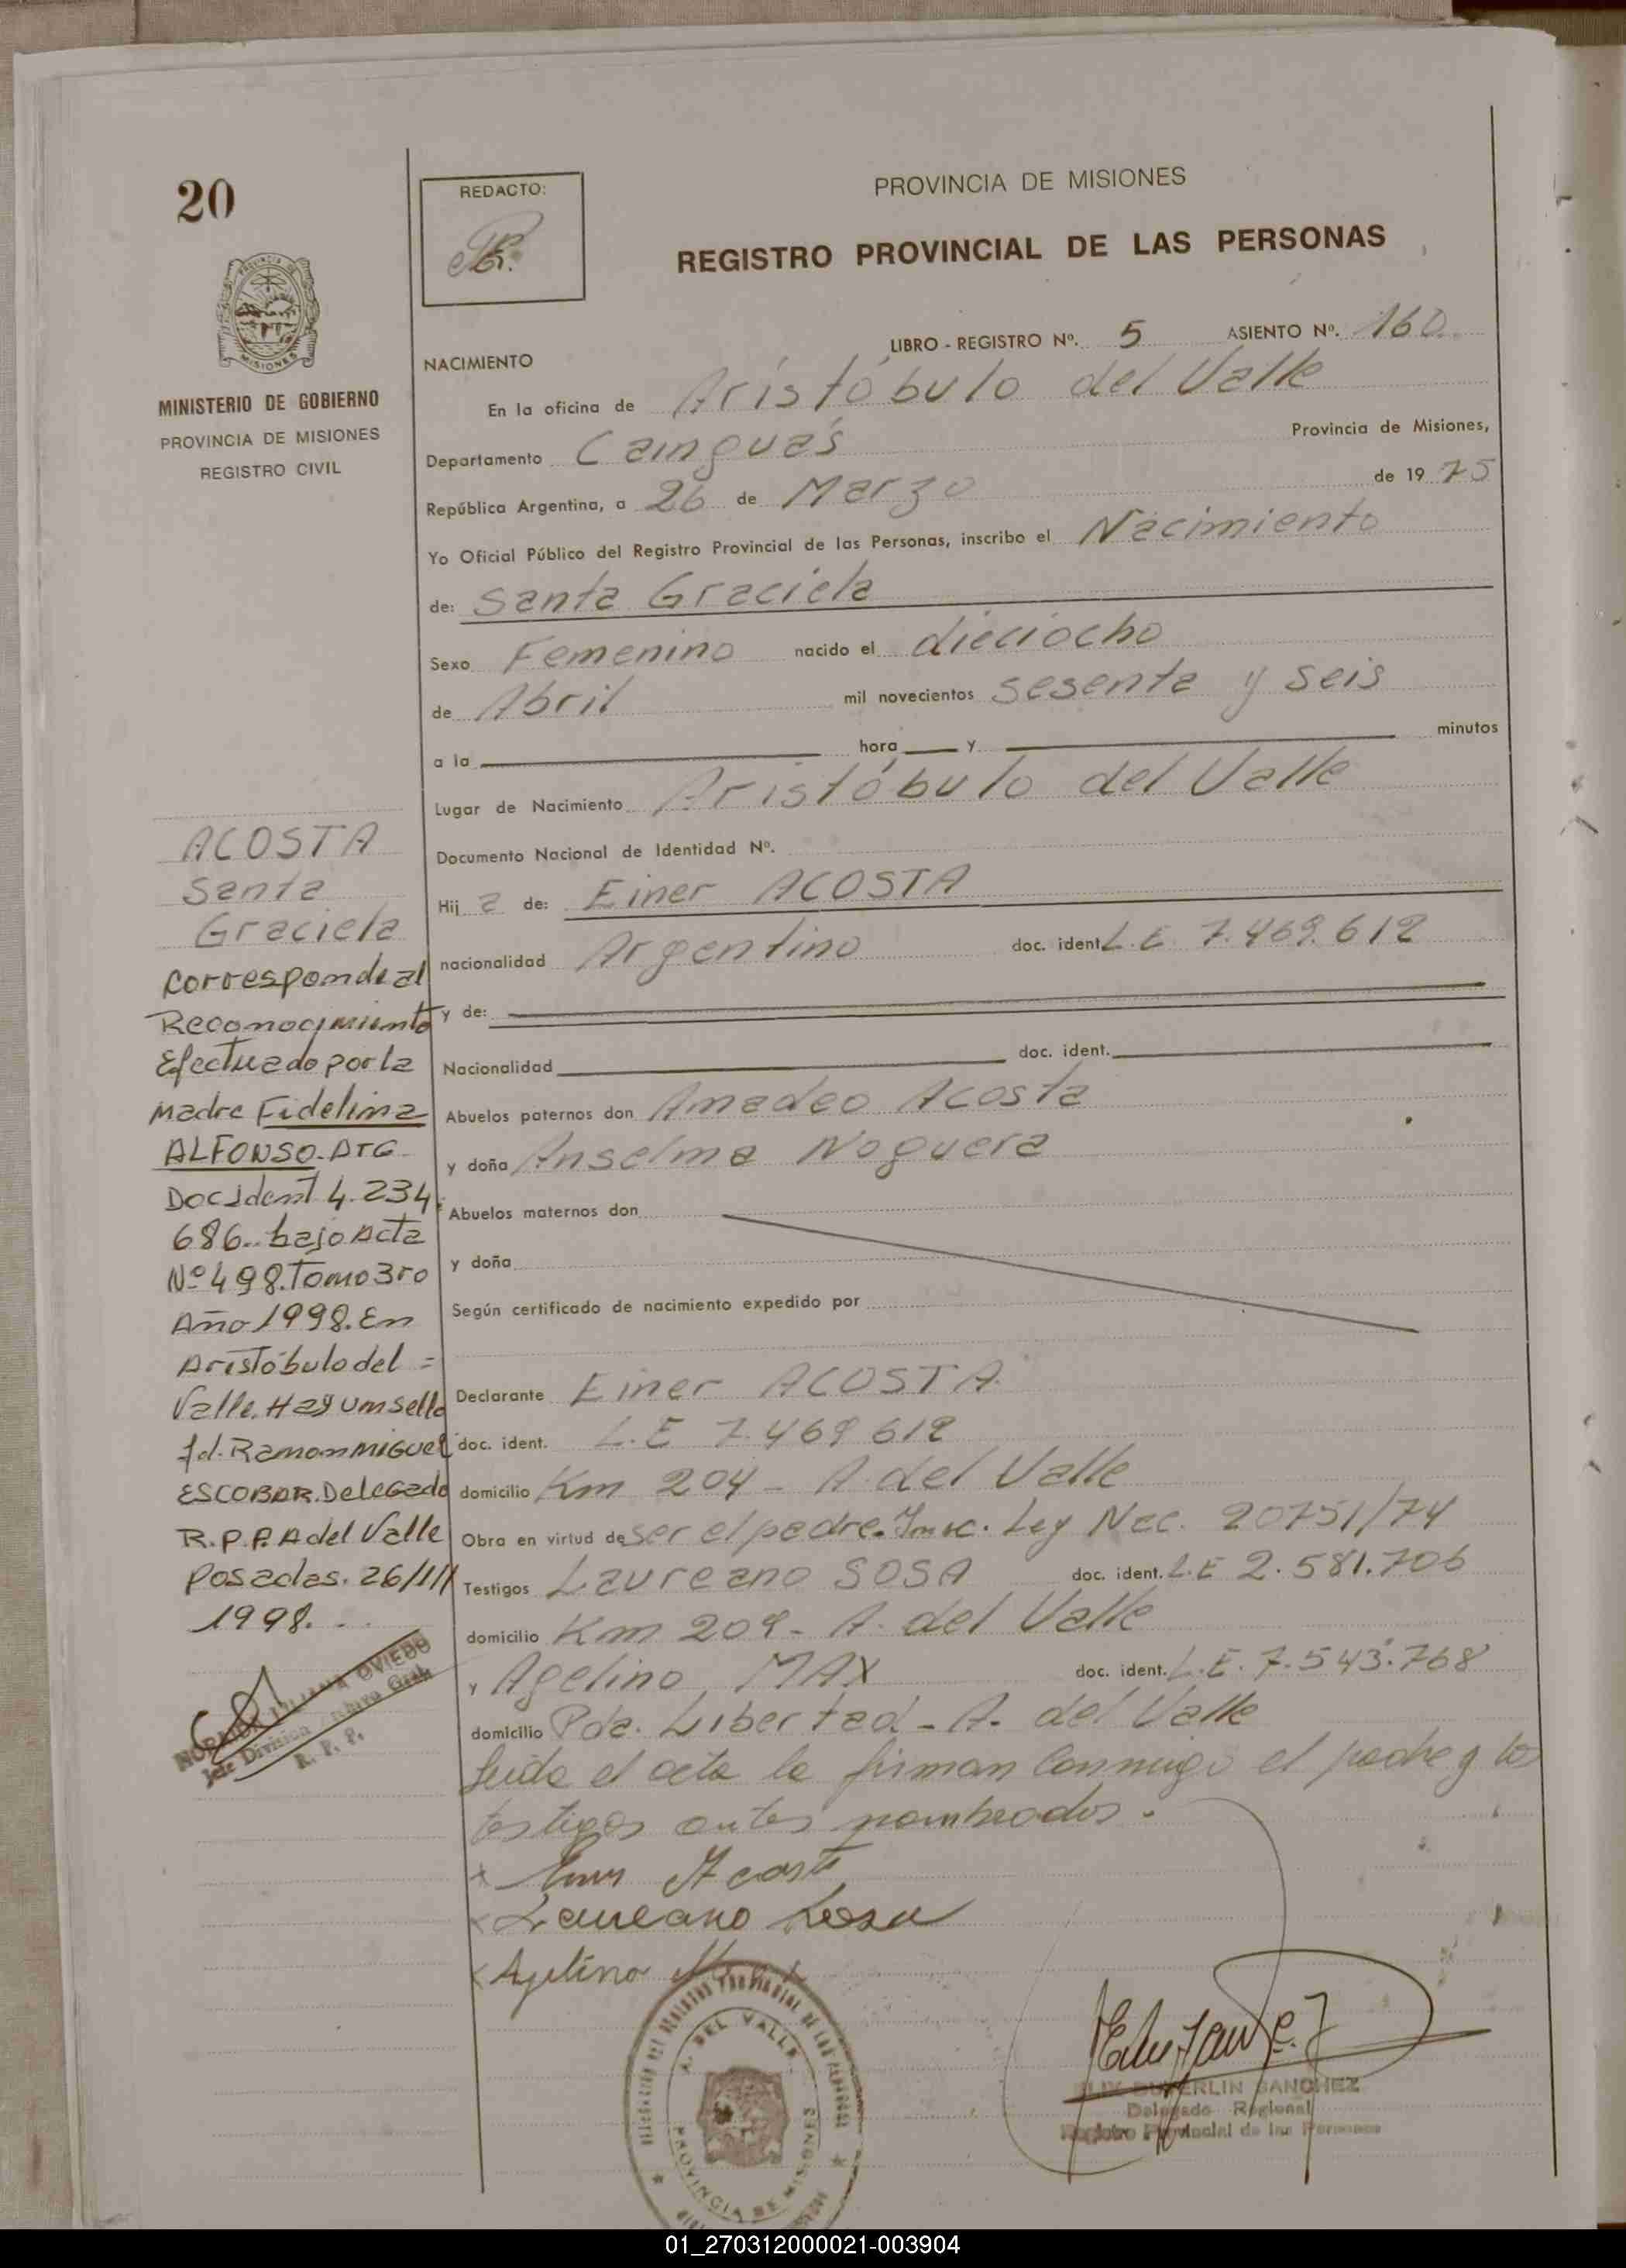 20
REDACTO:
PROVINCIA DE MISIONES
REGISTRO PROVINCIAL DE LAS PERSONAS
MINISTERIO DE GOBIERNO
PROVINCIA DE MISIONES
REGISTRO CIVIL
LIBRO - REGISTRO Nº. 5 ASIENTO Nº. 160
NACIMIENTO
En la oficina de Aristóbulo del Valle
Departamento Cainguás Provincia de Misiones,
República Argentina, a 26 de Marzo de 1975
Yo Oficial Público del Registro Provincial de las Personas, inscribo el Nacimiento
de: Santa Graciela
Sexo Femenino nacido el dieciocho
de Abril mil novecientos sesenta y seis
a la hora y minutos
Lugar de Nacimiento Aristóbulo del Valle
Documento Nacional de Identidad Nº.
Hij a de: Einer ACOSTA
nacionalidad Argentino doc. ident. L.E 7.469.612
y de:
Nacionalidad doc. ident.
Abuelos paternos don Amadeo Acosta
y doña Anselma Noguera
Abuelos maternos don
y doña
Según certificado de nacimiento expedido por
Declarante Einer ACOSTA
doc. ident. L.E 7.469 612
domicilio Km 204 - A. del Valle
Obra en virtud de ser el padre. Insc. Ley Nac. 20751/74
Testigos Laureano SOSA doc. ident. L.E 2.581.706
domicilio Km 209 - A. del Valle
y Agelino MAX doc. ident. L.E. 7.543.768
domicilio Pda. Libertad - A. del Valle
Leida el acta la firman conmigo el padre y los
testigos antes nombrados.
Acosta
Laureano Sosa
Agelino
ACOSTA
Santa
Graciela
Corresponde al
Reconocimiento
Efectuado por la
Madre Fidelina
ALFONSO. ARG
Doc Ident 4.234.
686.. bajo Acta
Nº 498. Tomo 3ro
Año 1998. En
Aristóbulo del =
Valle. Hay un sello
fd. Ramon MIGUEL
ESCOBAR. Delegado
R.P.P. A del Valle
Posadas. 26/11/
1998. ..
OVIEDO
Jefe División Archivo Gral.
R. P. P.
A. DEL VALLE
PROVINCIA DE MISIONES
SANCHEZ
Delegado Regional
Registro Provincial de las Personas
01_270312000021-003904